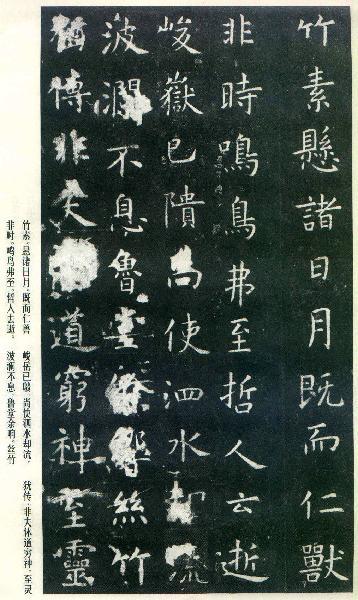 竹素懸諸日月既而仁獸
非時鳴鳥弗至哲人云逝
峻嶽已隤尚使泗水却流
波瀾不息魯堂餘響絲竹
猶傳非夫道窮神至靈
竹素。悬诸日月。既而仁兽
非时。鸣鸟弗至。哲人云逝。
峻岳已隤，尚使泗水却流，
波澜不息。鲁堂余响，丝竹
犹传。非夫体道穷神，至灵